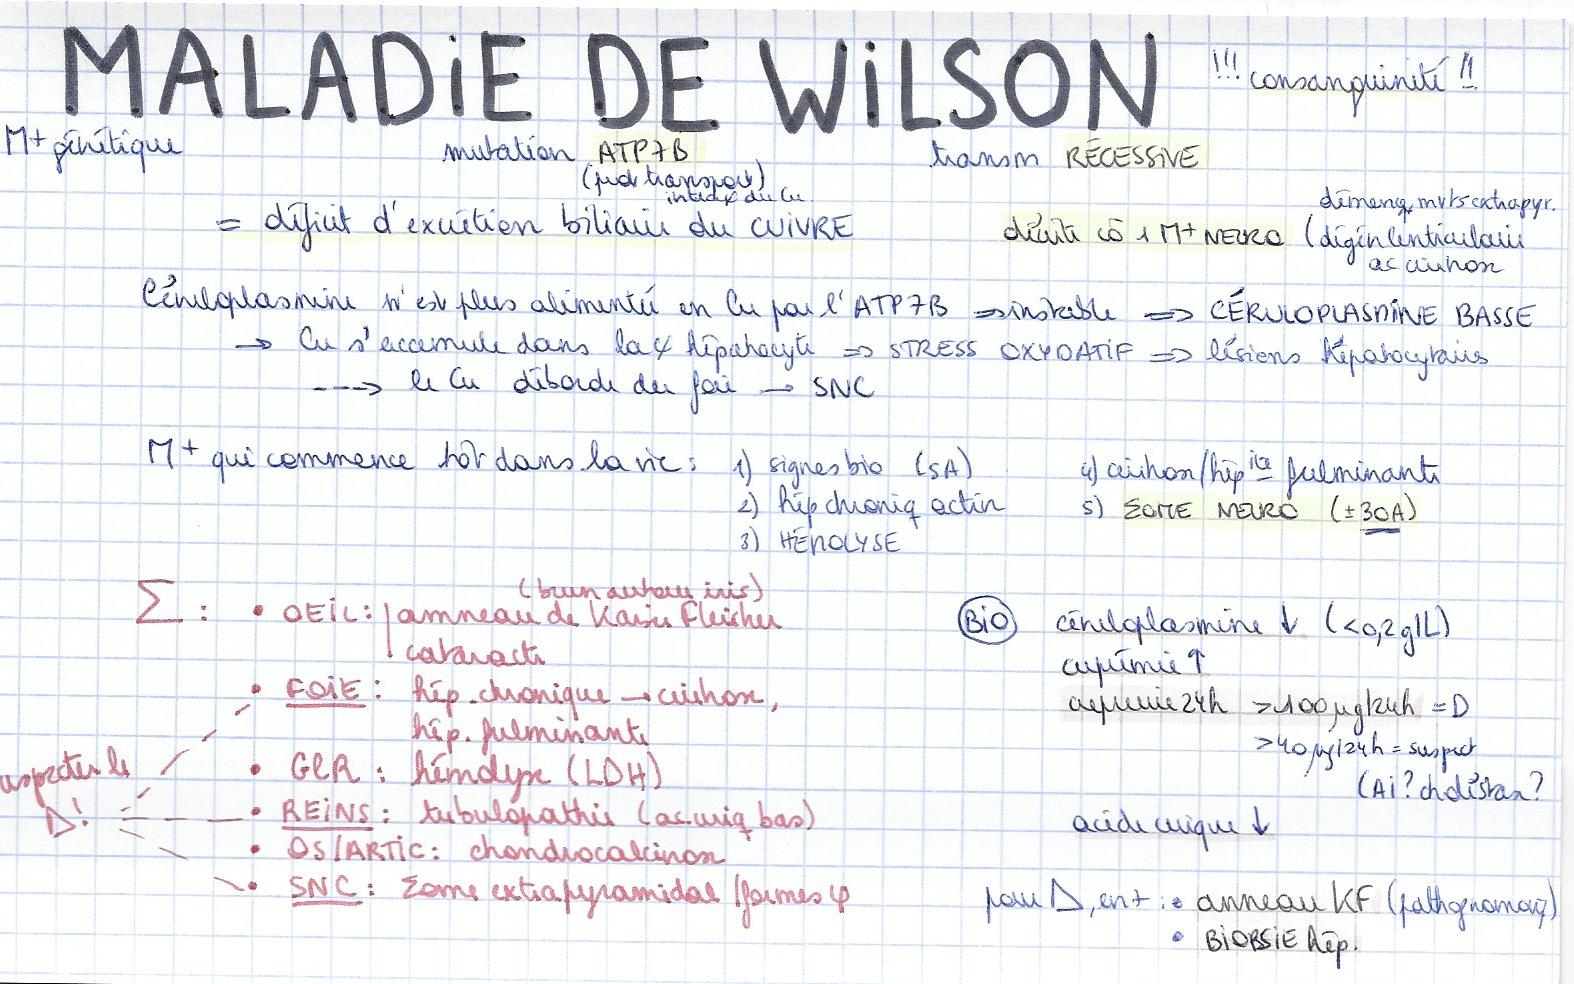 MALADiE DE WiLSON !!! consanguinité !!
M+ génétique mutation ATP7B transm RÉCESSIVE
(prot transport)
intra¢ du Cu
= déficit d'excrétion biliaire du CUIVRE
démence, mvts extrapyr.
décrite cô 1 M+ NEURO (dégén lenticulaire
ac cirrhose
Céruloplasmine n'est plus alimentée en Cu par l'ATP7B ⇒ instable ⇒ CÉRULOPLASMINE BASSE
→ Cu s'accumule dans la ¢ hépatocyte ⇒ STRESS OXYDATiF ⇒ lésions hépatocytaires
---> le Cu déborde du foie → SNC
M+ qui commence tôt dans la vie :
1) signes bio (5A)
2) hép chroniq active
3) HÉMOLYSE
4) cirrhose/hép ite fulminante
5) ΣOME NEURO (±30A)
Σ :
(brun autour iris)
• OEiL : anneau de Kaiser Fleisher
cataracte
• FOiE : hép. chronique → cirrhose,
hép. fulminante
• GlR : hémolyse (LDH)
• REiNS : tubulopathie (ac. uriq bas)
• OS/ARTiC : chondrocalcinose
• SNC : Σome extrapyramidal /formes ψ
suspecter le
Δ!
BiO céruloplasmine ↓ (<0,2g/L)
cuprémie ↑
cuprurie 24h >100µg/24h = D
>40µg/24h = suspect
(Ai? cholestase?
acide urique ↓
pour Δ, en + : • anneau KF (pathognomoq)
• BiOBSiE hép.